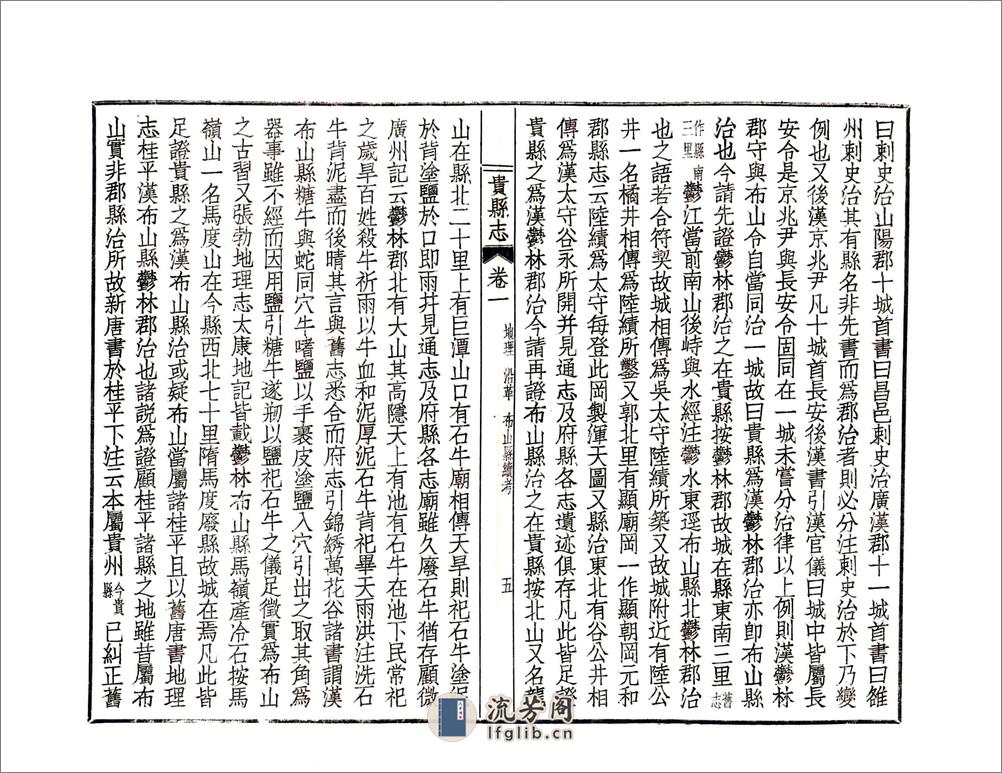 曰刺史治山陽郡十城首書曰昌邑刺史治廣漢郡十一城首書曰雒
州刺史治其有縣名非先書而爲郡治者則必分注刺史治於下乃變
例也又後漢京兆尹凡十城首長安後漢書引漢官儀曰城中皆屬長
安令是京兆尹與長安令固同在一城未嘗分治律以上例則漢鬱林
郡守與布山令自當同治一城故曰貴縣爲漢鬱林郡治亦卽布山縣
治也今請先證鬱林郡治之在貴縣按鬱林郡故城在縣東南三里舊志
作縣南三里鬱江當前南山後峙與水經注鬱水東逕布山縣北鬱林郡治
也之語若合符契故城相傳爲吳太守陸績所築又故城附近有陸公
井一名橘井相傳爲陸績所鑿又郭北里有顯廟岡一作顯朝岡元和
郡縣志云陸績爲太守每登此岡製渾天圖又縣治東北有谷公井相
傳爲漢太守谷永所開并見通志及府縣各志遺迹俱存凡此皆足證
貴縣之爲漢鬱林郡治今請再證布山縣治之在貴縣按北山又名龍
貴縣志
卷一
地理 沿革 布山縣續考
五
山在縣北二十里上有巨潭山口有石牛廟相傳天旱則祀石牛塗泥
於背塗鹽於口即雨并見通志及府縣各志廟雖久廢石牛猶存顧微
廣州記云鬱林郡北有大山其高隱天上有池有石牛在池下民常祀
之歲旱百姓殺牛祈雨以牛血和泥厚泥石牛背祀畢天雨洪注洗石
牛背泥盡而後晴其言與舊志悉合而府志引錦綉萬花谷諸書謂漢
布山縣糖牛與蛇同穴牛嗜鹽以手裹皮塗鹽入穴引出之取其角爲
器事雖不經而因用鹽引糖牛遂刱以鹽祀石牛之儀足徵實爲布山
之古習又張勃地理志太康地記皆載鬱林布山縣馬嶺產冷石按馬
嶺山一名馬度山在今縣西北七十里隋馬度廢縣故城在焉凡此皆
足證貴縣之爲漢布山縣治或疑布山當屬諸桂平且以舊唐書地理
志桂平漢布山縣鬱林郡治也諸說爲證顧桂平諸縣之地雖昔屬布
山實非郡縣治所故新唐書於桂平下注云本屬貴州今貴縣已糾正舊
流芳阁
lfglib.cn